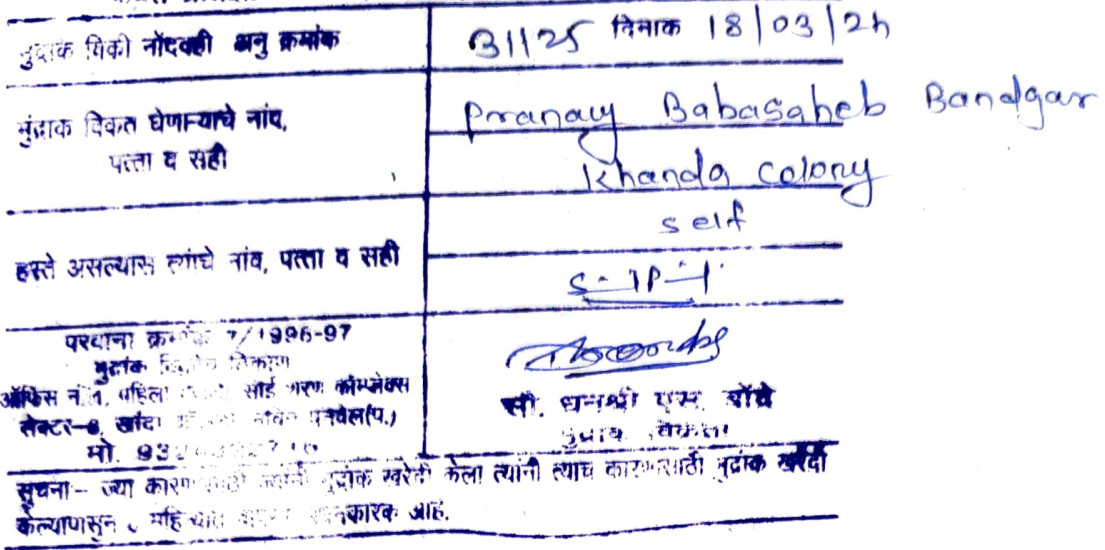 मुद्रांक विक्री नोंदवही अनु क्रमांक 31125 दिनांक 18/03/24
मुंद्राक विकत घेणाऱ्याचे नांव,
पत्ता व सही
Pranay Babasaheb Bandgar
Khanda Colony
self
हस्ते असल्यास त्यांचे नांव, पत्ता व सही
परवाना क्रमांक 7/1996-97
मुद्रांक विक्रीचे ठिकाण
ऑफिस नं.1, पहिला साई शरण कॉम्प्लेक्स
सेक्टर-8, खांदा पनवेल(प.)
मो.
सौ. धनश्री एम.
मुद्रांक विक्रेता
सूचना - ज्या कारणासाठी ज्यांनी मुद्रांक खरेदी केला त्यांनी त्याच कारणासाठी मुद्रांक खरेदी
केल्यापासून महिन्यात आहे.